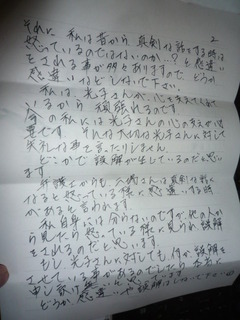 2
それに私は昔から真剣な話をする時は
怒っているのではないのか、、?と感違い
をされる事が多々ありますので、どうぞ
感違いなどしないで下さい。
私は光子さんが、心を支えてくれて
いるから頑張れるのです。
今の私には光子さんの心の支えが必
要です。それなのに大切な光子さんに対して
失礼な事を言ったりしません。
どこかで誤解が生じているのだと思い
ます。
弁護士からも、さんは真剣な話に
なると怒っている様に感違いする時
があると言われます。
私自身には分らないのですが、他の人か
ら見たら怒っている様に見られ誤解
をされるのだと思います。
もし光子さんに対しても、何か誤解を
させている事があるのでしたら、本当に
申し訳け無いと思っています。
どうか感違いや誤解はしないで下さいね